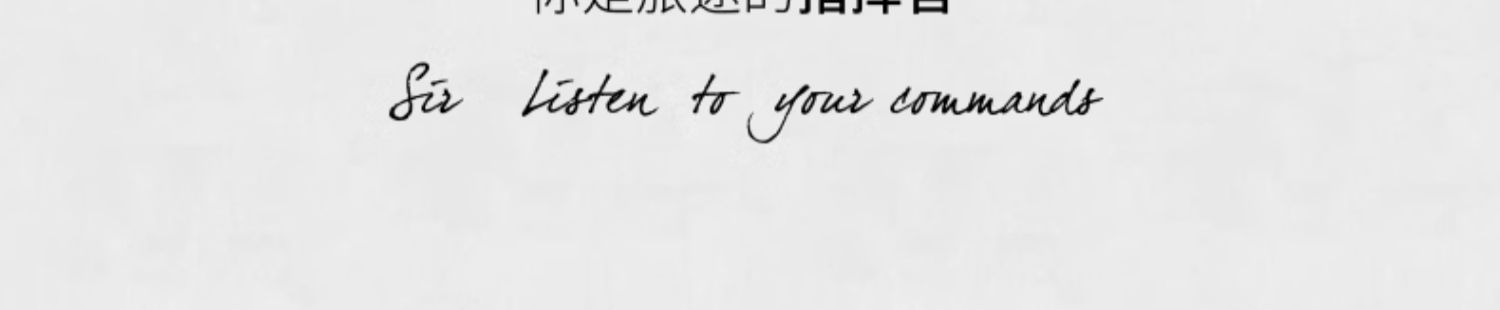 你是旅途的指挥官
Sir Listen to your commands